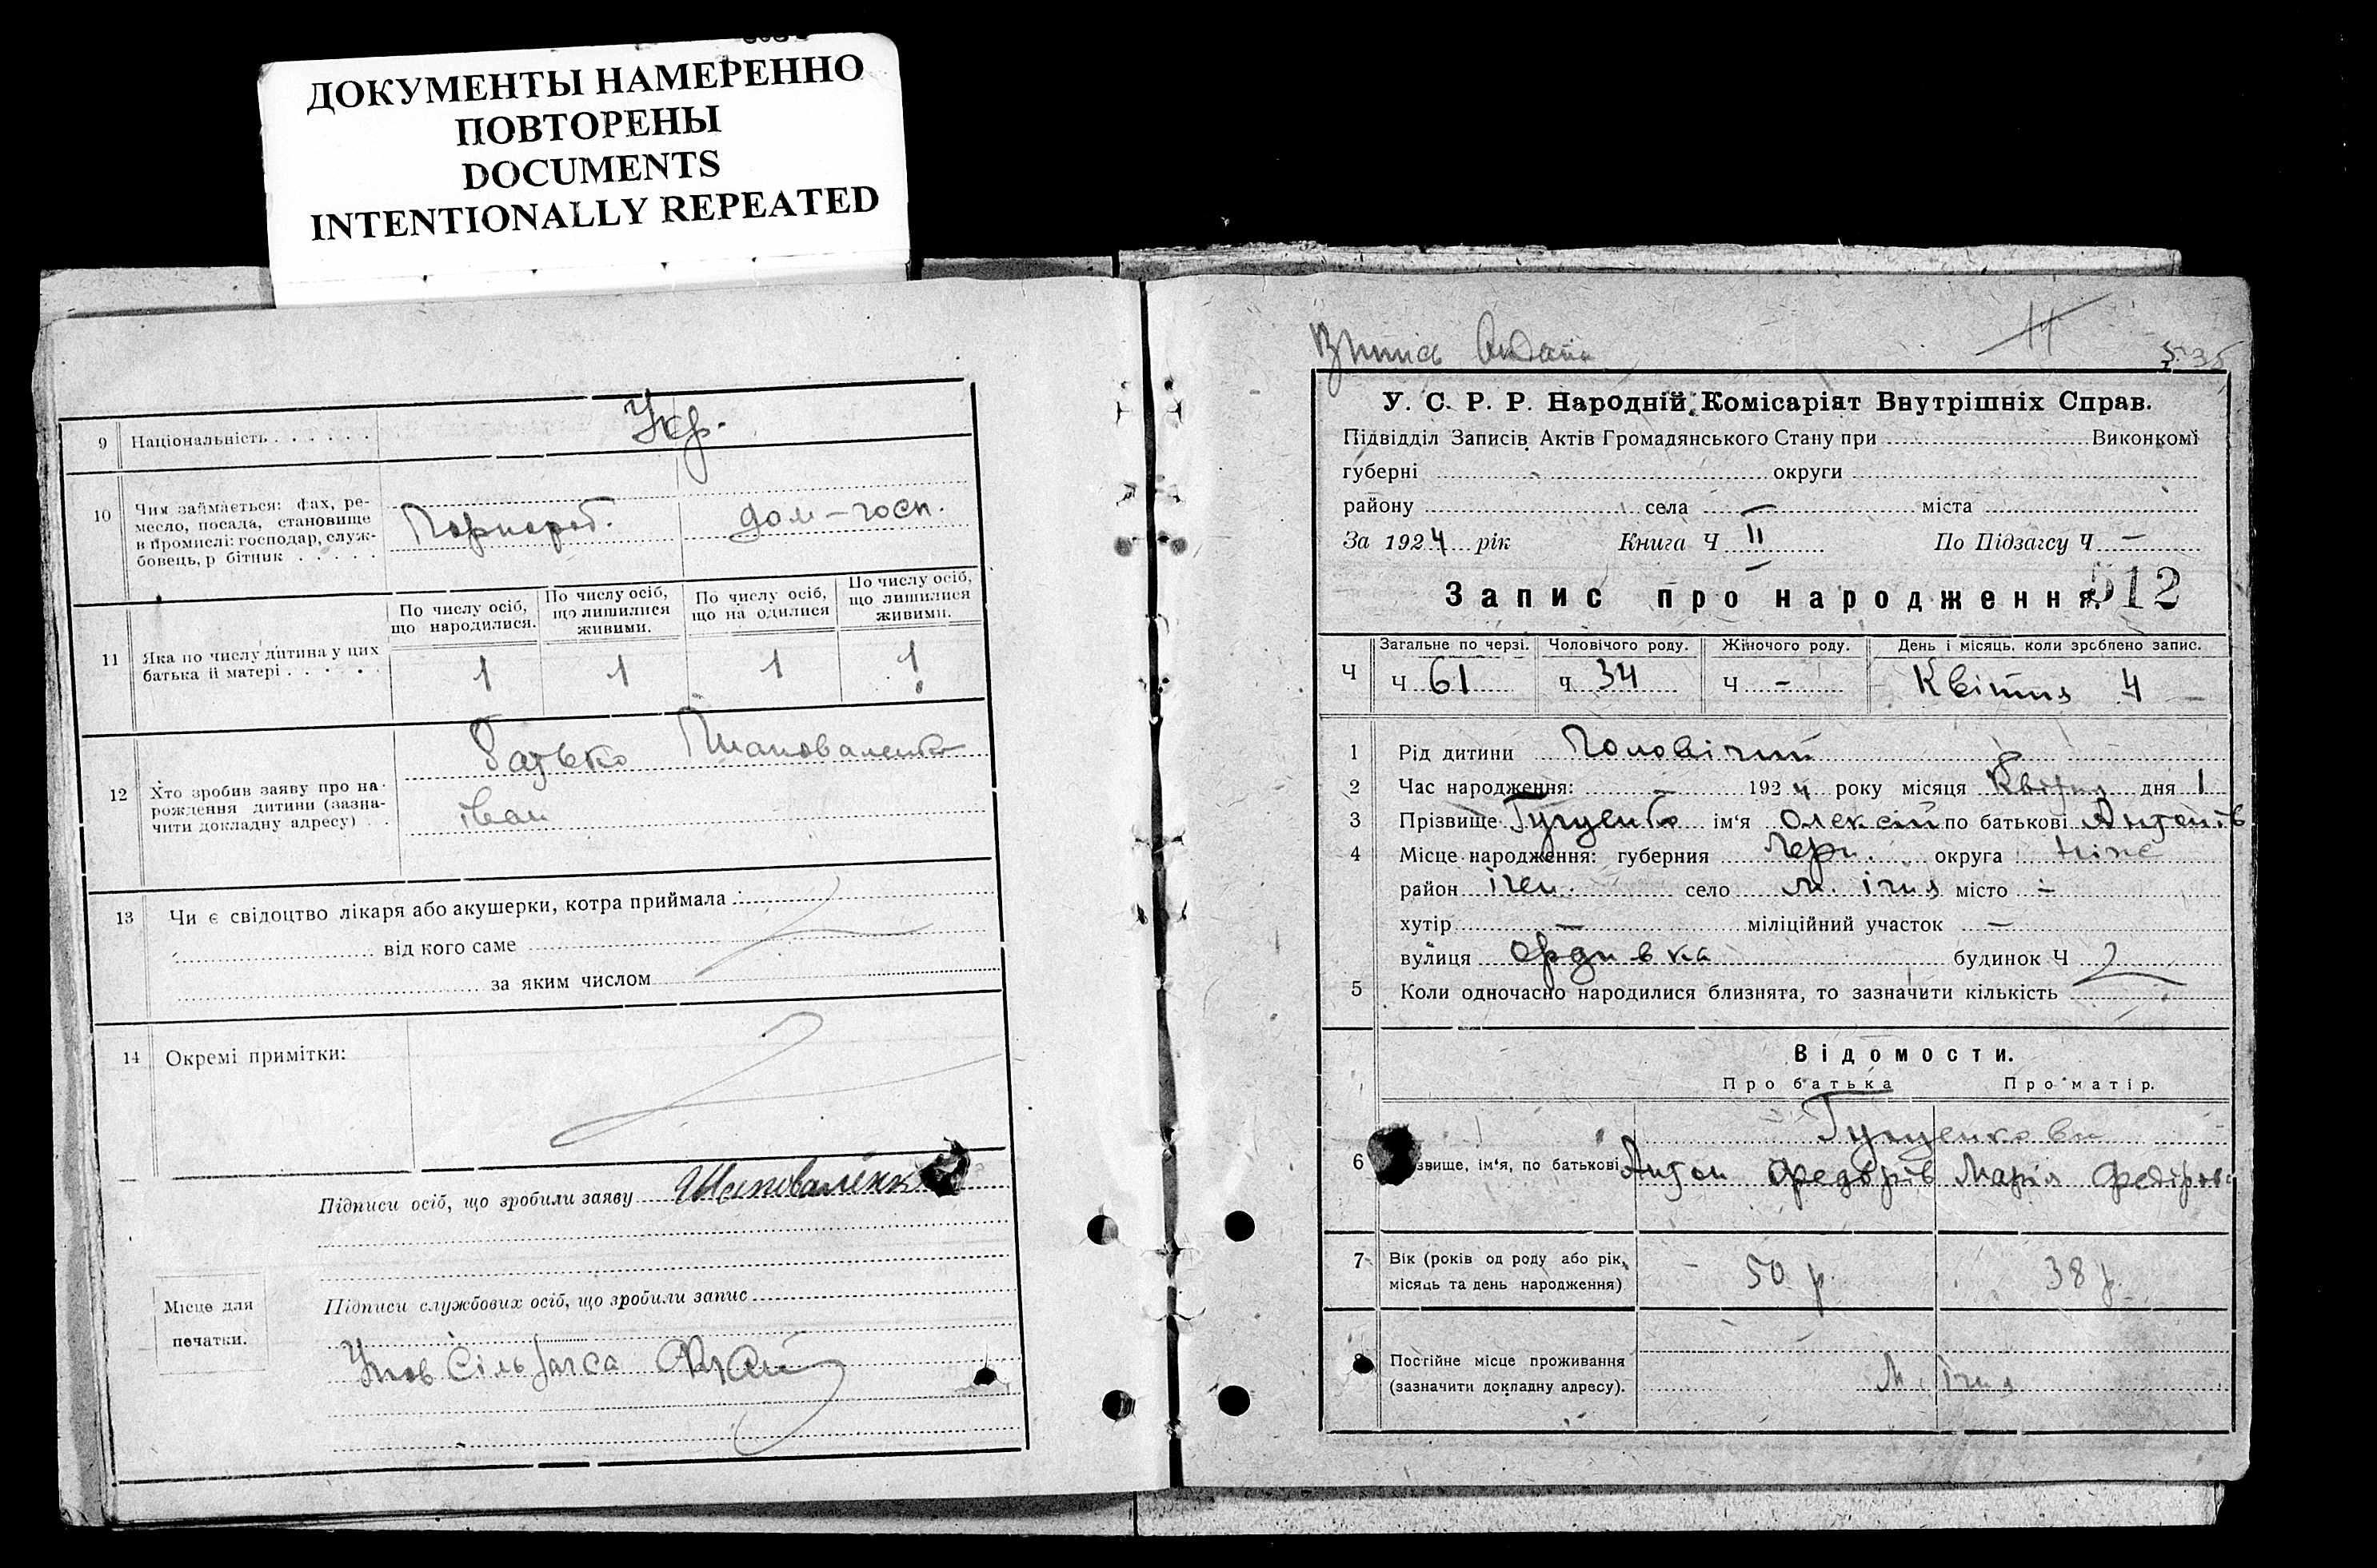 ДОКУМЕНТЫ НАМЕРЕННО
ПОВТОРЕНЫ
DOCUMENTS
INTENTIONALLY REPEATED
9 Національність . . . . . . Укр.
10 Чим займається: фах, ре-
месло, посада, становище
в промислі: господар, служ-
бовець, р бітник . . . . .
дом-госп.
11 Яка по числу дитина у цих
батька й матері . . . . .
По числу осіб,
що народилися.
По числу осіб,
що лишилися
живими.
По числу осіб,
що на одилися
По числу осіб,
що лишилися
живими.
1 1 1 1
12 Хто зробив заяву про на-
рождення дитини (зазна-
чити докладну адресу) . .
Батько Шаповаленко
Іван
13 Чи є свідоцтво лікаря або акушерки, котра приймала
від кого саме
за яким числом
14 Окремі примітки:
Підписи осіб, що зробили заяву Шаповаленк
Підписи службових осіб, що зробили запис
Місце для
печатки.
Упов Сільзагса
Випись
11
У. С. Р. Р. Народній Комісаріят Внутрішніх Справ.
Підвідділ Записів Актів Громадянського Стану при Виконкомі
губерні округи
району села міста
За 1924 рік Книга Ч II По Підзагсу Ч –
Запис про народження 512
Загальне по черзі. Чоловічого роду. Жіночого роду. День і місяць, коли зроблено запис.
Ч Ч 61 Ч 34 Ч – Квітня 4
1 Рід дитини Чоловічий
2 Час народження: – 1924 року місяця Квітня дня 1
3 Прізвище Гуценко ім'я Олексій по батькові Антонів
4 Місце народження: губерния Черн. округа Ніж
район Ічен. село м. Ічня місто –
хутір – міліційний участок –
вулиця будинок Ч
5 Коли одночасно народилися близнята, то зазначити кількість
Відомости.
Про батька Про матір.
Гуценкови
6 звище, ім'я, по батькові Антон Федорів Марія Федорів
7 Вік (років од роду або рік,
місяць та день народження)
50 р. 38 р.
8 Постійне місце проживання
(зазначити докладну адресу).
м. Ічня